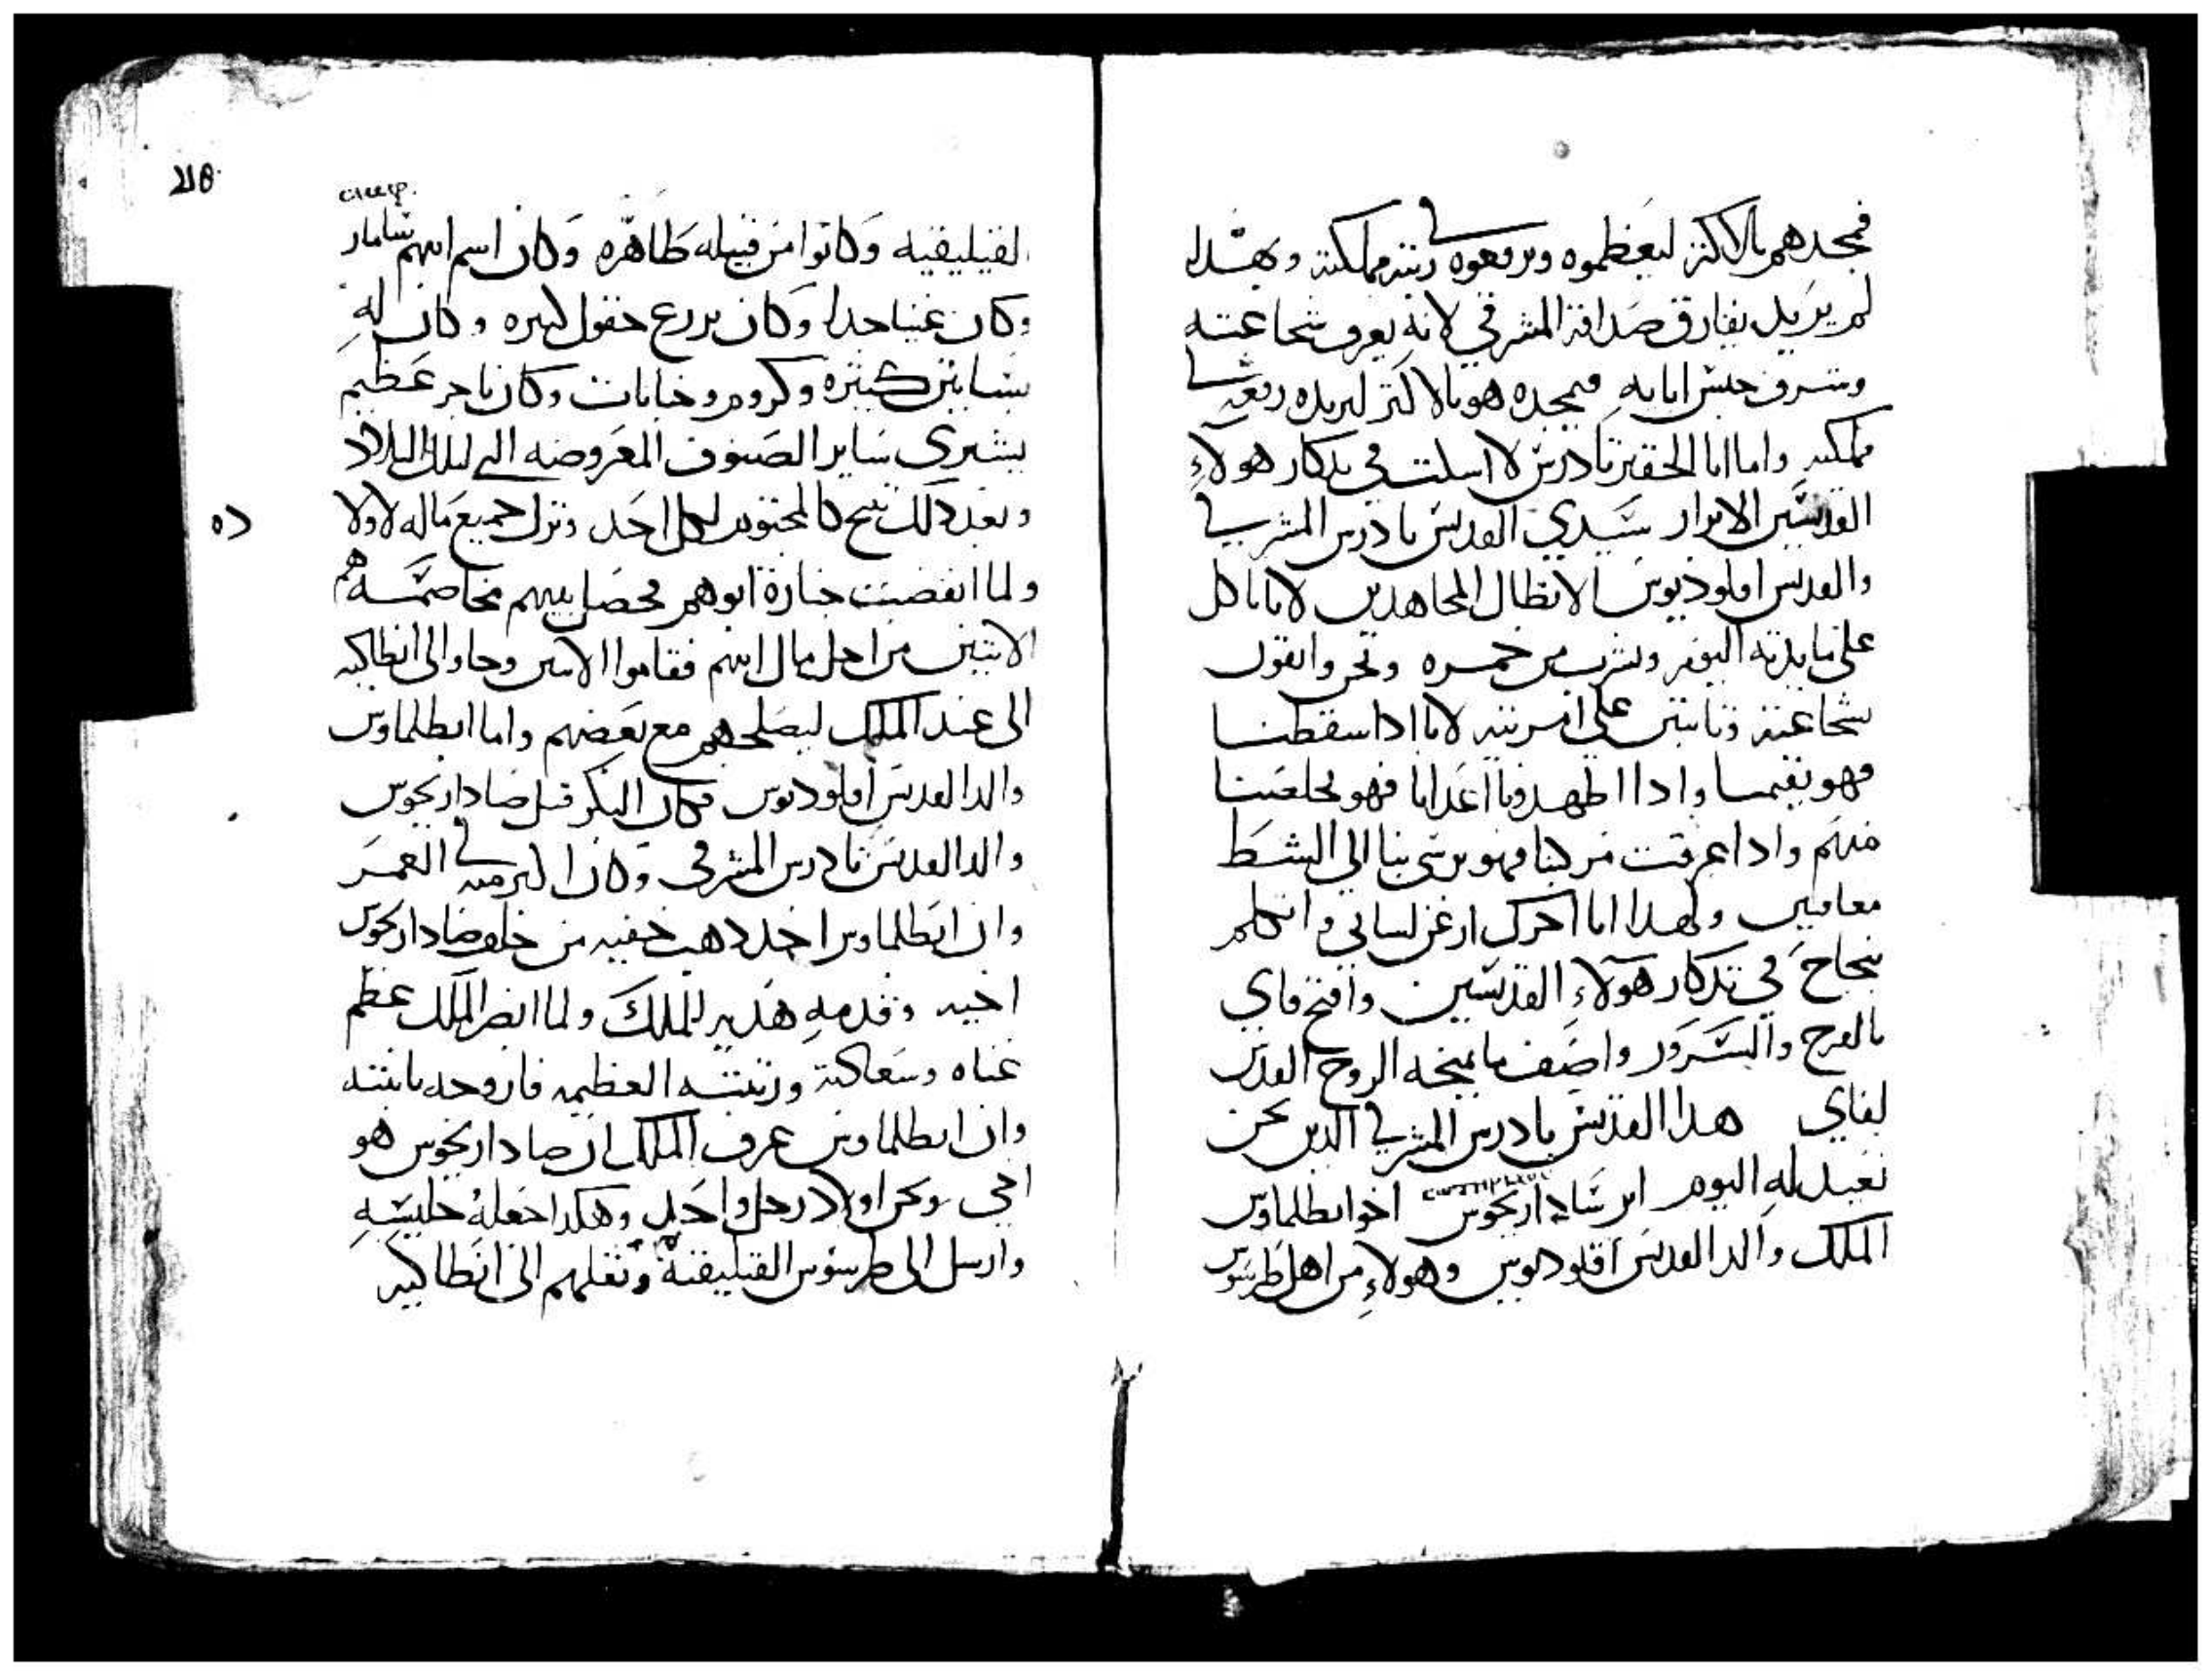 فيمجدهم بالاكتر ليعظموه ويرفعوه في رتبة مملكته وبهذا
لم يريد يفارق صداقة المشرقي لانه يعرف شجاعته
وشرف جنس ابايه فيمجده هو بالاكتر ليريده رفعه في
مملكته واما انا الحقير تادرس لا اسكت في تدكار هولاء
القديسين الابرار سيدي القديس تادرس المشرقي
والقديس اقلوديوس الابطال المجاهدين لاننا ناكل
على مايدته اليوم ونشرب من خمره ونحن وانقول
شجاعته وثابتين على امريته لاننا ادا سقطنا
فهو يقيمنا وادا اطهدونا اعدانا فهو يخلصنا
منهم وادا غرقت مركبنا فهو يرسي بنا الي الشط
معافين ولهدا انا احرك ارغن لساني واتكلم
بنجاح في تدكار هولاء القديسين وافتح فاي
بالفرح والسرور واضيف ما يمنحه الروح القدس
لفاي هدا القديس تادرس المشرقي الدين نحن
نعيد له اليوم ابن صادارىخوس اخو ابطلماوس
الملك والد القديس اقلوديوس وهولاء من اهل طرسوس
ⲥⲁⲙⲉⲣ
القيليقيه وكانوا من قبيله طاهره وكان اسم ابيهم سامار
وكان غنيا جدا وكان يزرع حقول كتيره وكان له
بساتين كتيره وكروم وخانات وكان تاجر عظيم
يشتري ساير الصنوف المعروضه الي تلك البلاد
وبعد دلك تنيح كالمحتوم لكل احد وترك جميع ماله لاولا
ده
ولما انقضت جنازة ابوهم فحصل بينهم مخاصمه هم
الاتنين من اجل مال ابيهم فقاموا الاتنين وجاوا الى انطاكيه
الى عند الملك ليصلحهم مع بعضهم واما ابطلماوس
والد القديس اقلوديوس فكان البكر قبل صادارىخوس
والد القديس تادرس المشرقي وكان اكبر منه في العمر
وان ابطلماوس اخد دهب خفيه من خلف صادارىخوس
اخيه وقدمه هديه للملك ولما انضر الملك عظم
غناه وسعاكته وزينته العظيمه فازوجه بابنته
وان ابطلماوس عرف الملك ان صادارىخوس هو
اخي ونحن اولاد رجل واحد وهكدا جعله جليسه
وارسل الى طرسوس القيليقيه ونقلهم الى انطاكيه